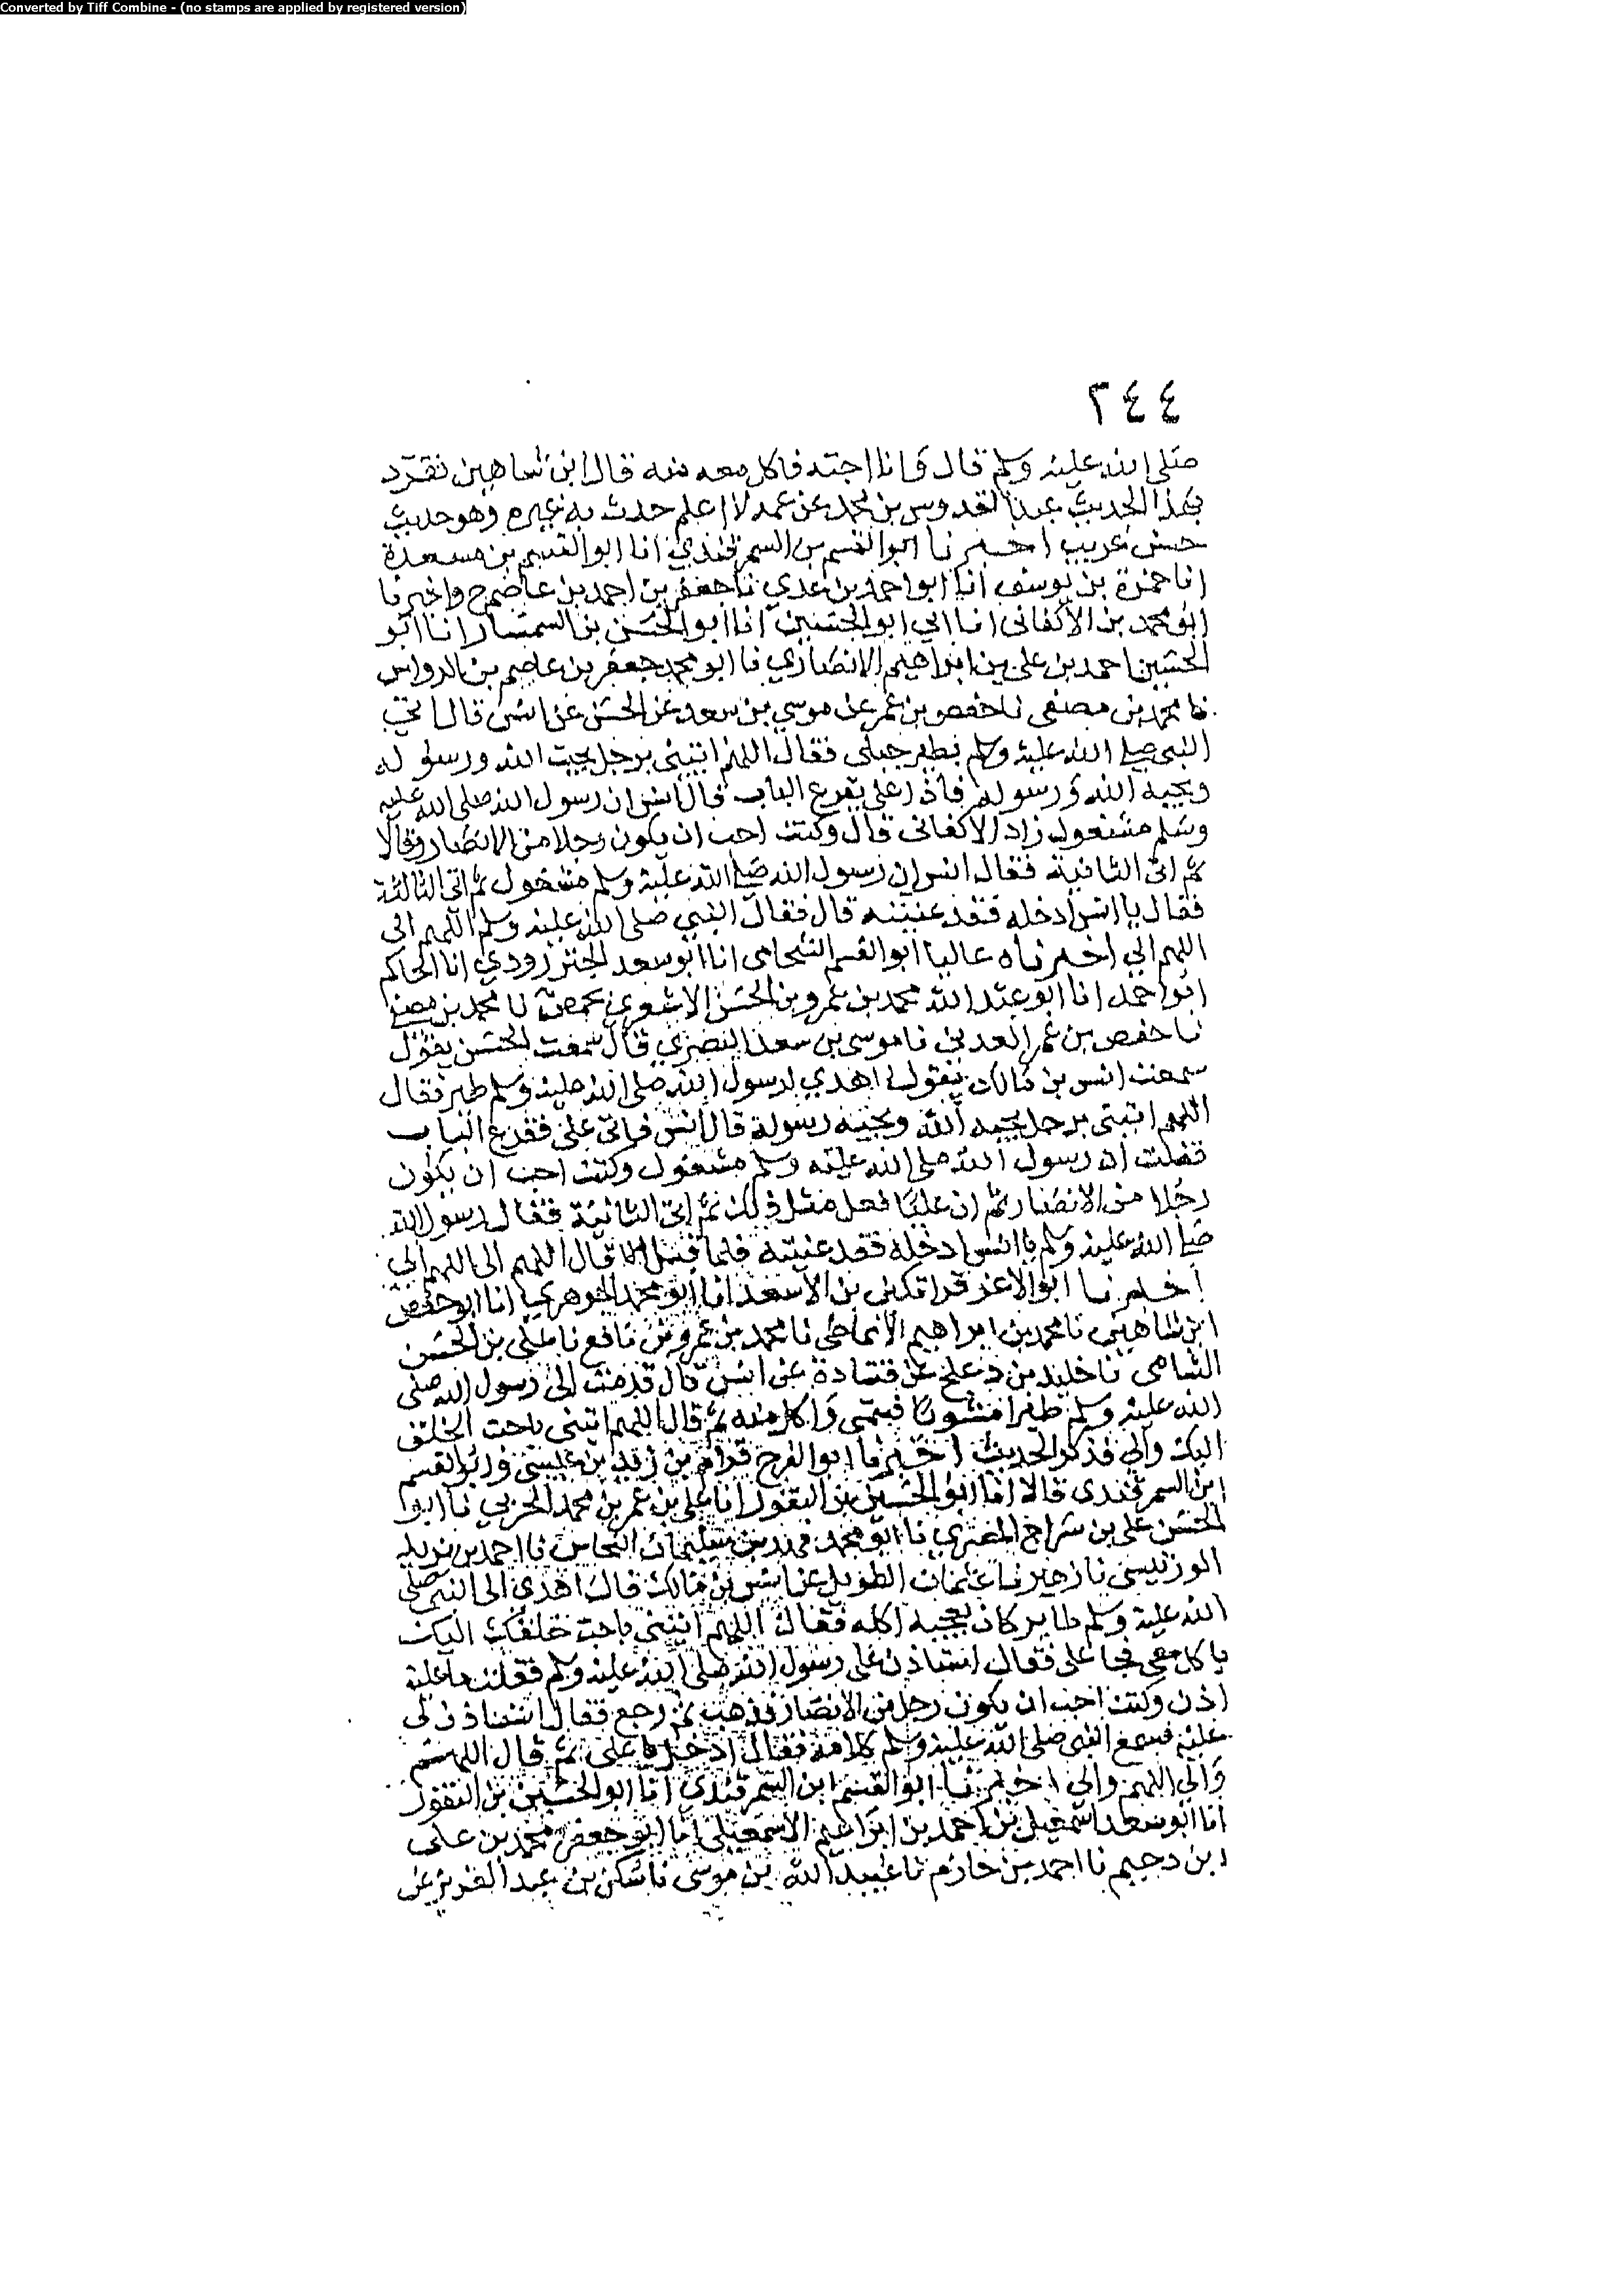 Converted by Tiff Combine - (no stamps are applied by registered version)
٢٤٤
صلى الله عليه وسلم قال وانا احبه فاكل معه منه قال ابن شاهين تفرد
بهذا الحديث عبد القدوس بن محمد عن عمه لا اعلم حدث به غيره وهو حديث
حسن غريب اخبرنا ابو القسم بن السمرقندي انا ابو القسم بن مسعدة
انا حمزة بن يوسف انا ابو احمد بن عدي نا جعفر بن احمد بن عاصم ح واخبرنا
ابو محمد بن الاكفاني انا ابي ابو الحسين انا ابو الحسن بن السمسار انا ابو
الحسين احمد بن علي بن ابراهيم الانصاري نا ابو محمد جعفر بن عاصم بن الرواس
نا محمد بن مصفى نا حفص بن عمر عن موسى بن سعد عن الحسن عن انس قال اتي
النبي صلى الله عليه وسلم بطير جبلي فقال اللهم ائتني برجل يحب الله ورسوله
ويحبه الله ورسوله فاذا علي يقرع الباب قال انس ان رسول الله صلى الله عليه
وسلم مشغول زاد الاكفاني قال وكنت احب ان يكون رجلا من الانصار وقالا
ثم اتى الثانية فقال انس ان رسول الله صلى الله عليه وسلم مشغول ثم اتى الثالثة
فقال يا انس ادخله فقد عنيته قال فقال النبي صلى الله عليه وسلم اللهم الي
اللهم الي اخبرناه عاليا ابو القسم الشحامي انا ابو سعد الجنزرودي انا الحاكم
ابو احمد انا ابو عبد الله محمد بن عمرو بن الحسن الاشعري بحمص نا محمد بن مصفى
نا حفص بن عمر العدني نا موسى بن سعد البصري قال سمعت الحسن يقول
سمعت انس بن مالك يقول اهدي لرسول الله صلى الله عليه وسلم طير فقال
اللهم ائتني برجل يحبه الله ويحبه رسوله قال انس فاتى علي فقرع الباب
فقلت ان رسول الله صلى الله عليه وسلم مشغول وكنت احب ان يكون
رجلا من الانصار ثم ان عليا فعل مثل ذلك ثم اتى الثانية فقال رسول الله
صلى الله عليه وسلم يا انس ادخله فقد عنيته فلما اقبل قال اللهم الي اللهم الي
اخبرنا ابو الاعز قراتكين بن الاسعد انا ابو محمد الجوهري انا ابو حفص
ابن شاهين نا محمد بن ابراهيم الانماطي نا محمد بن عمرو بن نافع نا علي بن الحسن
الشامي نا خليد بن دعلج عن قتادة عن انس قال قدمت الى رسول الله صلى
الله عليه وسلم طيرا مشويا فسمى واكل منه ثم قال اللهم ائتني باحب الخلق
اليك والي فذكر الحديث اخبرنا ابو الفرج قوام بن زيد بن عيسى وابو القسم
ابن السمرقندي قالا انا ابو الحسين بن النقور انا علي بن عمر بن محمد الحربي نا ابو
الحسن علي بن سراج المصري نا ابو محمد فهد بن سليمان النحاس نا احمد بن يزيد
الورتنيسي نا زهير نا عثمان الطويل عن انس بن مالك قال اهدي الى النبي صلى
الله عليه وسلم طاير كان يعجبه اكله فقال اللهم ائتني باحب خلقك اليك
ياكل معي فجا علي فقال استاذن على رسول الله صلى الله عليه وسلم فقلت ما عليه
اذن وكنت احب ان يكون رجل من الانصار فذهب ثم رجع فقال استاذن لي
عليه فسمع النبي صلى الله عليه وسلم كلامه فقال ادخل يا علي ثم قال اللهم
والي اللهم والي اخبرنا ابو القسم ابن السمرقندي انا ابو الحسين بن النقور
انا ابو سعد اسمعيل بن احمد بن ابراهيم الاسمعيلي انا ابو جعفر محمد بن علي
ابن دحيم نا احمد بن حازم نا عبيد الله بن موسى نا سكن بن عبد العزيز عن